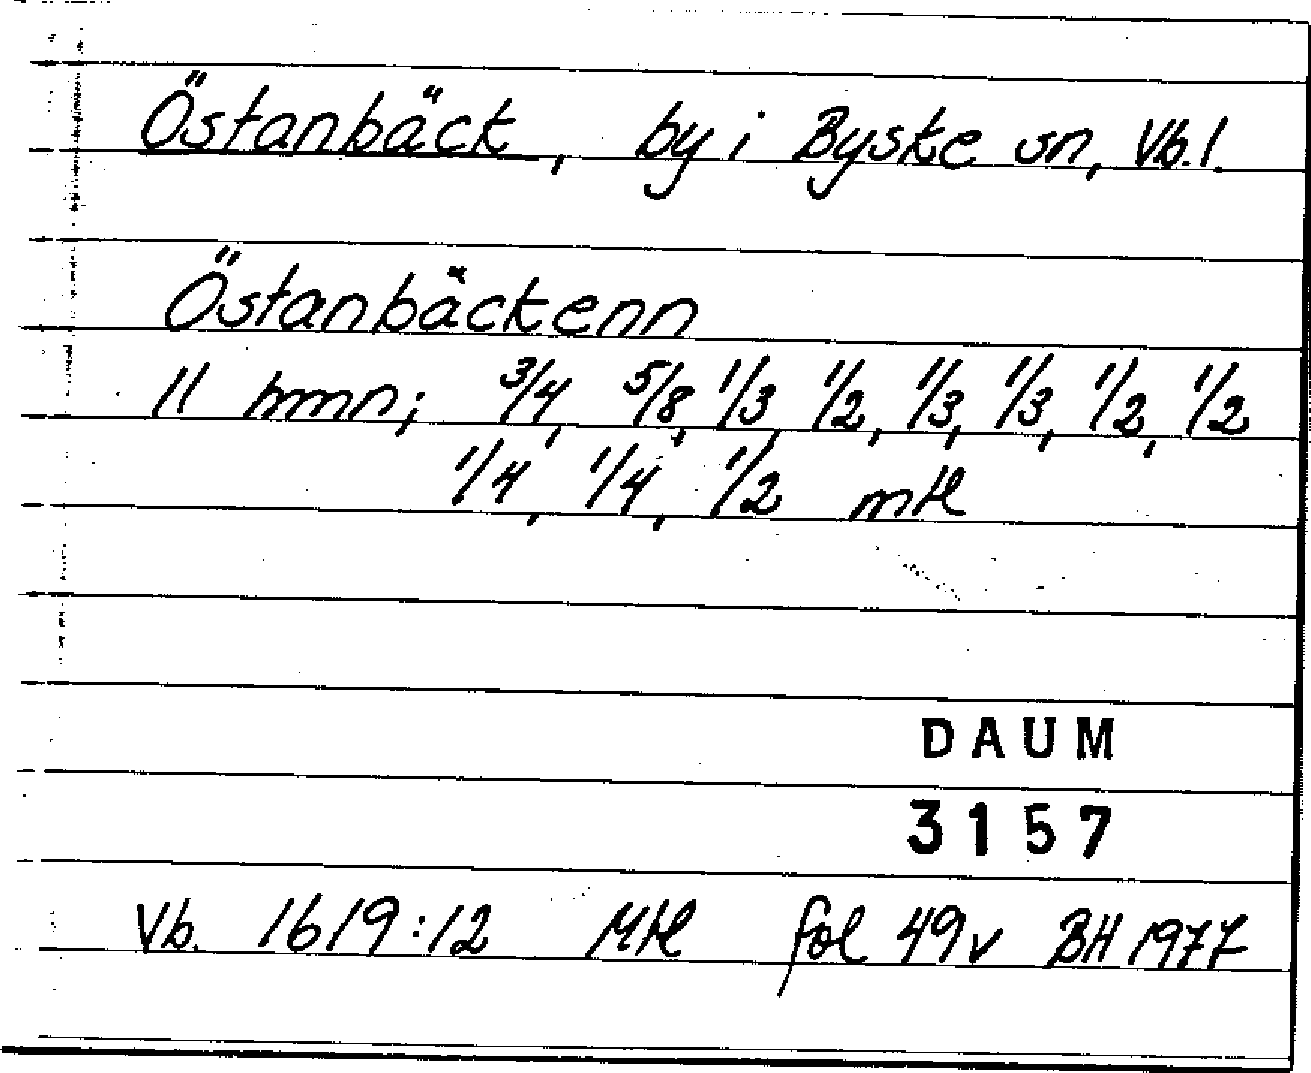 Östanbäck, by i Byske sn, Vb.l.
Östanbäckenn
11 hmn; 3/4, 5/8, 1/3, 1/2, 1/3, 1/3, 1/2, 1/2
1/4, 1/4, 1/2 mtl
DAUM
3157
Vb. 1619:12 Mtl fol 49v BH 1977